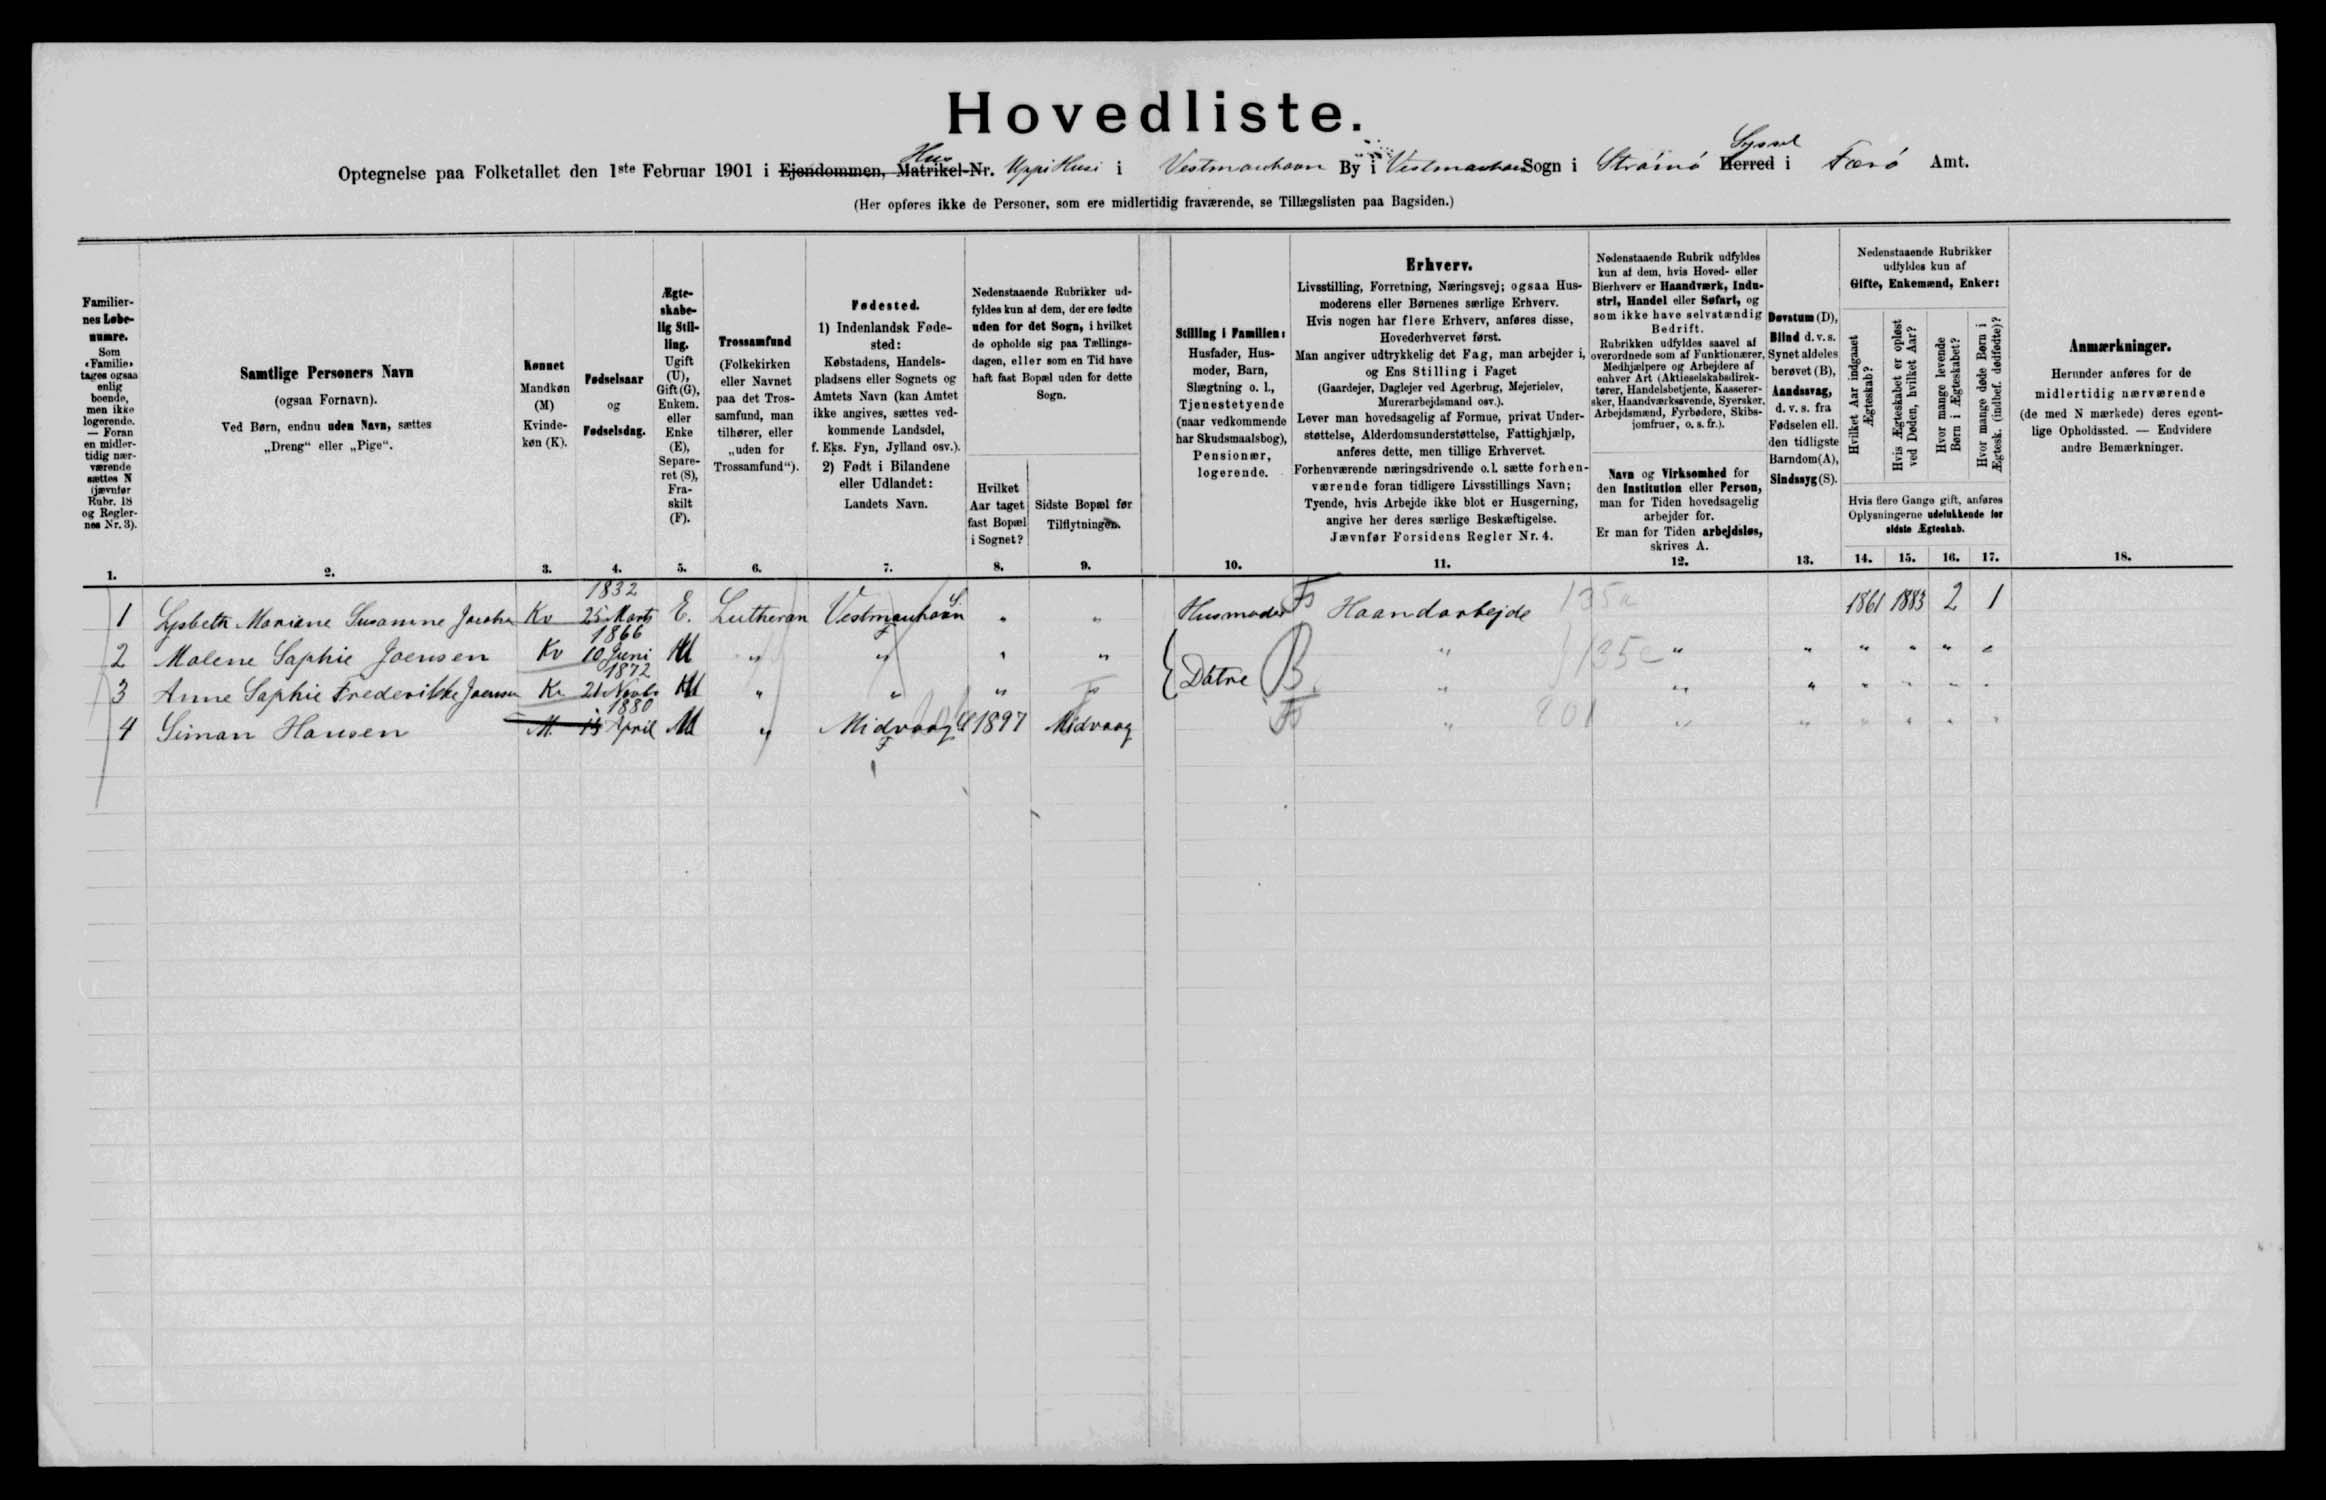 Hovedliste.
Hus Syssel
Optegnelse paa Folketallet den 1ste Februar 1901 i Ejendommen, Matrikel-Nr. Uppi Husi i Vestmanhavn By i Vestmanhavn Sogn i Strömö Herred i Færö Amt.
(Her opføres ikke de Personer, som ere midlertidig fraværende, se Tillægslisten paa Bagsiden.)
Familier-
nes Løbe-
numre.
Som
«Familie»
tages ogsaa
enlig
boende,
men ikke
logerende.
— Foran
en midler-
tidig nær-
værende
sættes N
(jævnfør
Rubr. 18
og Regler-
nes Nr. 3).
1.
Samtlige Personers Navn
(ogsaa Fornavn).
Ved Børn, endnu uden Navn, sættes
„Dreng“ eller „Pige“.
2.
Kønnet
Mandkøn
(M)
Kvinde-
køn (K).
3.
Fødselsaar
og
Fødselsdag.
4.
Ægte-
skabe-
lig Stil-
ling.
Ugift
(U),
Gift (G),
Enkem.
eller
Enke
(E),
Separe-
ret (S),
Fra-
skilt
(F).
5.
Trossamfund
(Folkekirken
eller Navnet
paa det Tros-
samfund, man
tilhører, eller
„uden for
Trossamfund“).
6.
Fødested.
1) Indenlandsk Føde-
sted:
Købstadens, Handels-
pladsens eller Sognets og
Amtets Navn (kan Amtet
ikke angives, sættes ved-
kommende Landsdel,
f. Eks. Fyn, Jylland osv.).
2) Født i Bilandene
eller Udlandet:
Landets Navn.
7.
Nedenstaaende Rubrikker ud-
fyldes kun af dem, der ere fødte
uden for det Sogn, i hvilket
de opholde sig paa Tællings-
dagen, eller som en Tid have
haft fast Bopæl uden for dette
Sogn.
Hvilket
Aar taget
fast Bopæl
i Sognet?
8.
Sidste Bopæl før
Tilflytningen.
9.
Stilling i Familien:
Husfader, Hus-
moder, Barn,
Slægtning o. l.,
Tjenestetyende
(naar vedkommende
har Skudsmaalsbog),
Pensionær,
logerende.
10.
Erhverv.
Livsstilling, Forretning, Næringsvej; ogsaa Hus-
moderens eller Børnenes særlige Erhverv.
Hvis nogen har flere Erhverv, anføres disse,
Hovederhvervet først.
Man angiver udtrykkelig det Fag, man arbejder i,
og Ens Stilling i Faget
(Gaardejer, Daglejer ved Agerbrug, Mejerielev,
Murerarbejdsmand osv.).
Lever man hovedsagelig af Formue, privat Under-
støttelse, Alderdomsunderstøttelse, Fattighjælp,
anføres dette, men tillige Erhvervet.
Forhenværende næringsdrivende o.l. sætte forhen-
værende foran tidligere Livsstillings Navn;
Tyende, hvis Arbejde ikke blot er Husgerning,
angive her deres særlige Beskæftigelse.
Jævnfør Forsidens Regler Nr. 4.
11.
Nedenstaaende Rubrik udfyldes
kun af dem, hvis Hoved- eller
Bierhverv er Haandværk, Indu-
stri, Handel eller Søfart, og
som ikke have selvstændig
Bedrift.
Rubrikken udfyldes saavel af
overordnede som af Funktionærer,
Medhjælpere og Arbejdere af
enhver Art (Aktieselskabsdirek-
tører, Handelsbetjente, Kasserer-
sker, Haandværkssvende, Syersker,
Arbejdsmænd, Fyrbødere, Skibs-
jomfruer, o. s. fr.).
Navn og Virksomhed for
den Institution eller Person,
man for Tiden hovedsagelig
arbejder for.
Er man for Tiden arbejdsløs,
skrives A.
12.
Døvstum (D),
Blind d. v. s.
Synet aldeles
berøvet (B),
Aandssvag,
d. v. s. fra
Fødselen ell.
den tidligste
Barndom (A),
Sindssyg (S).
13.
Nedenstaaende Rubrikker
udfyldes kun af
Gifte, Enkemænd, Enker:
Hvilket Aar indgaaet
Ægteskab?
Hvis Ægteskabet er opløst
ved Døden, hvilket Aar?
Hvor mange levende
Børn i Ægteskabet?
Hvor mange døde Børn i
Ægtesk. (indbef. dødfødte)?
Hvis flere Gange gift, anføres
Oplysningerne udelukkende for
sidste Ægteskab.
14. 15. 16. 17.
Anmærkninger.
Herunder anføres for de
midlertidig nærværende
(de med N mærkede) deres egent-
lige Opholdssted. — Endvidere
andre Bemærkninger.
18.
1832
1 Lisbeth Mariene Susanne Kv 25 Marts E. Lutheran Vestmanhavn " " Husmoder Haandarbejde 135a 1861 1883 2 1
1866
2 Malene Saphie Joensen Kv 10 Juni U " " " " { Døtre B " } 135c " " " " " "
1872
3 Anne Saphie Frederikke Joensen Kv 21 Novbr U " " " " " " " " " " "
1880
4 Siman Hansen M. 13 April U " Midvaag 1897 Midvaag " 801 " " " " " "